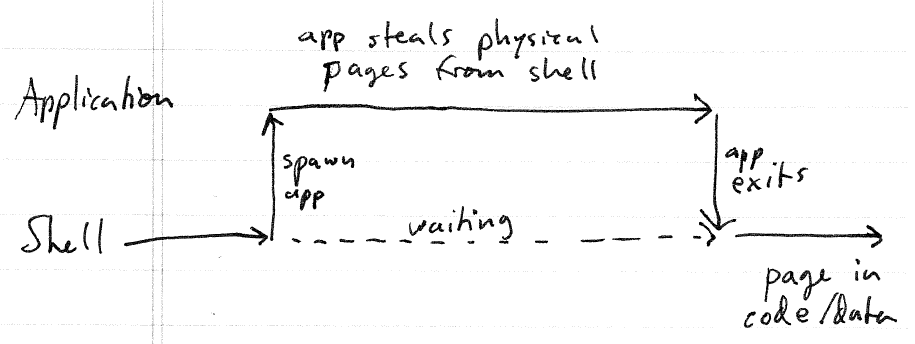 app steals physical
pages from shell
Application
spawn
app
app
exits
waiting
Shell
page in
code/data